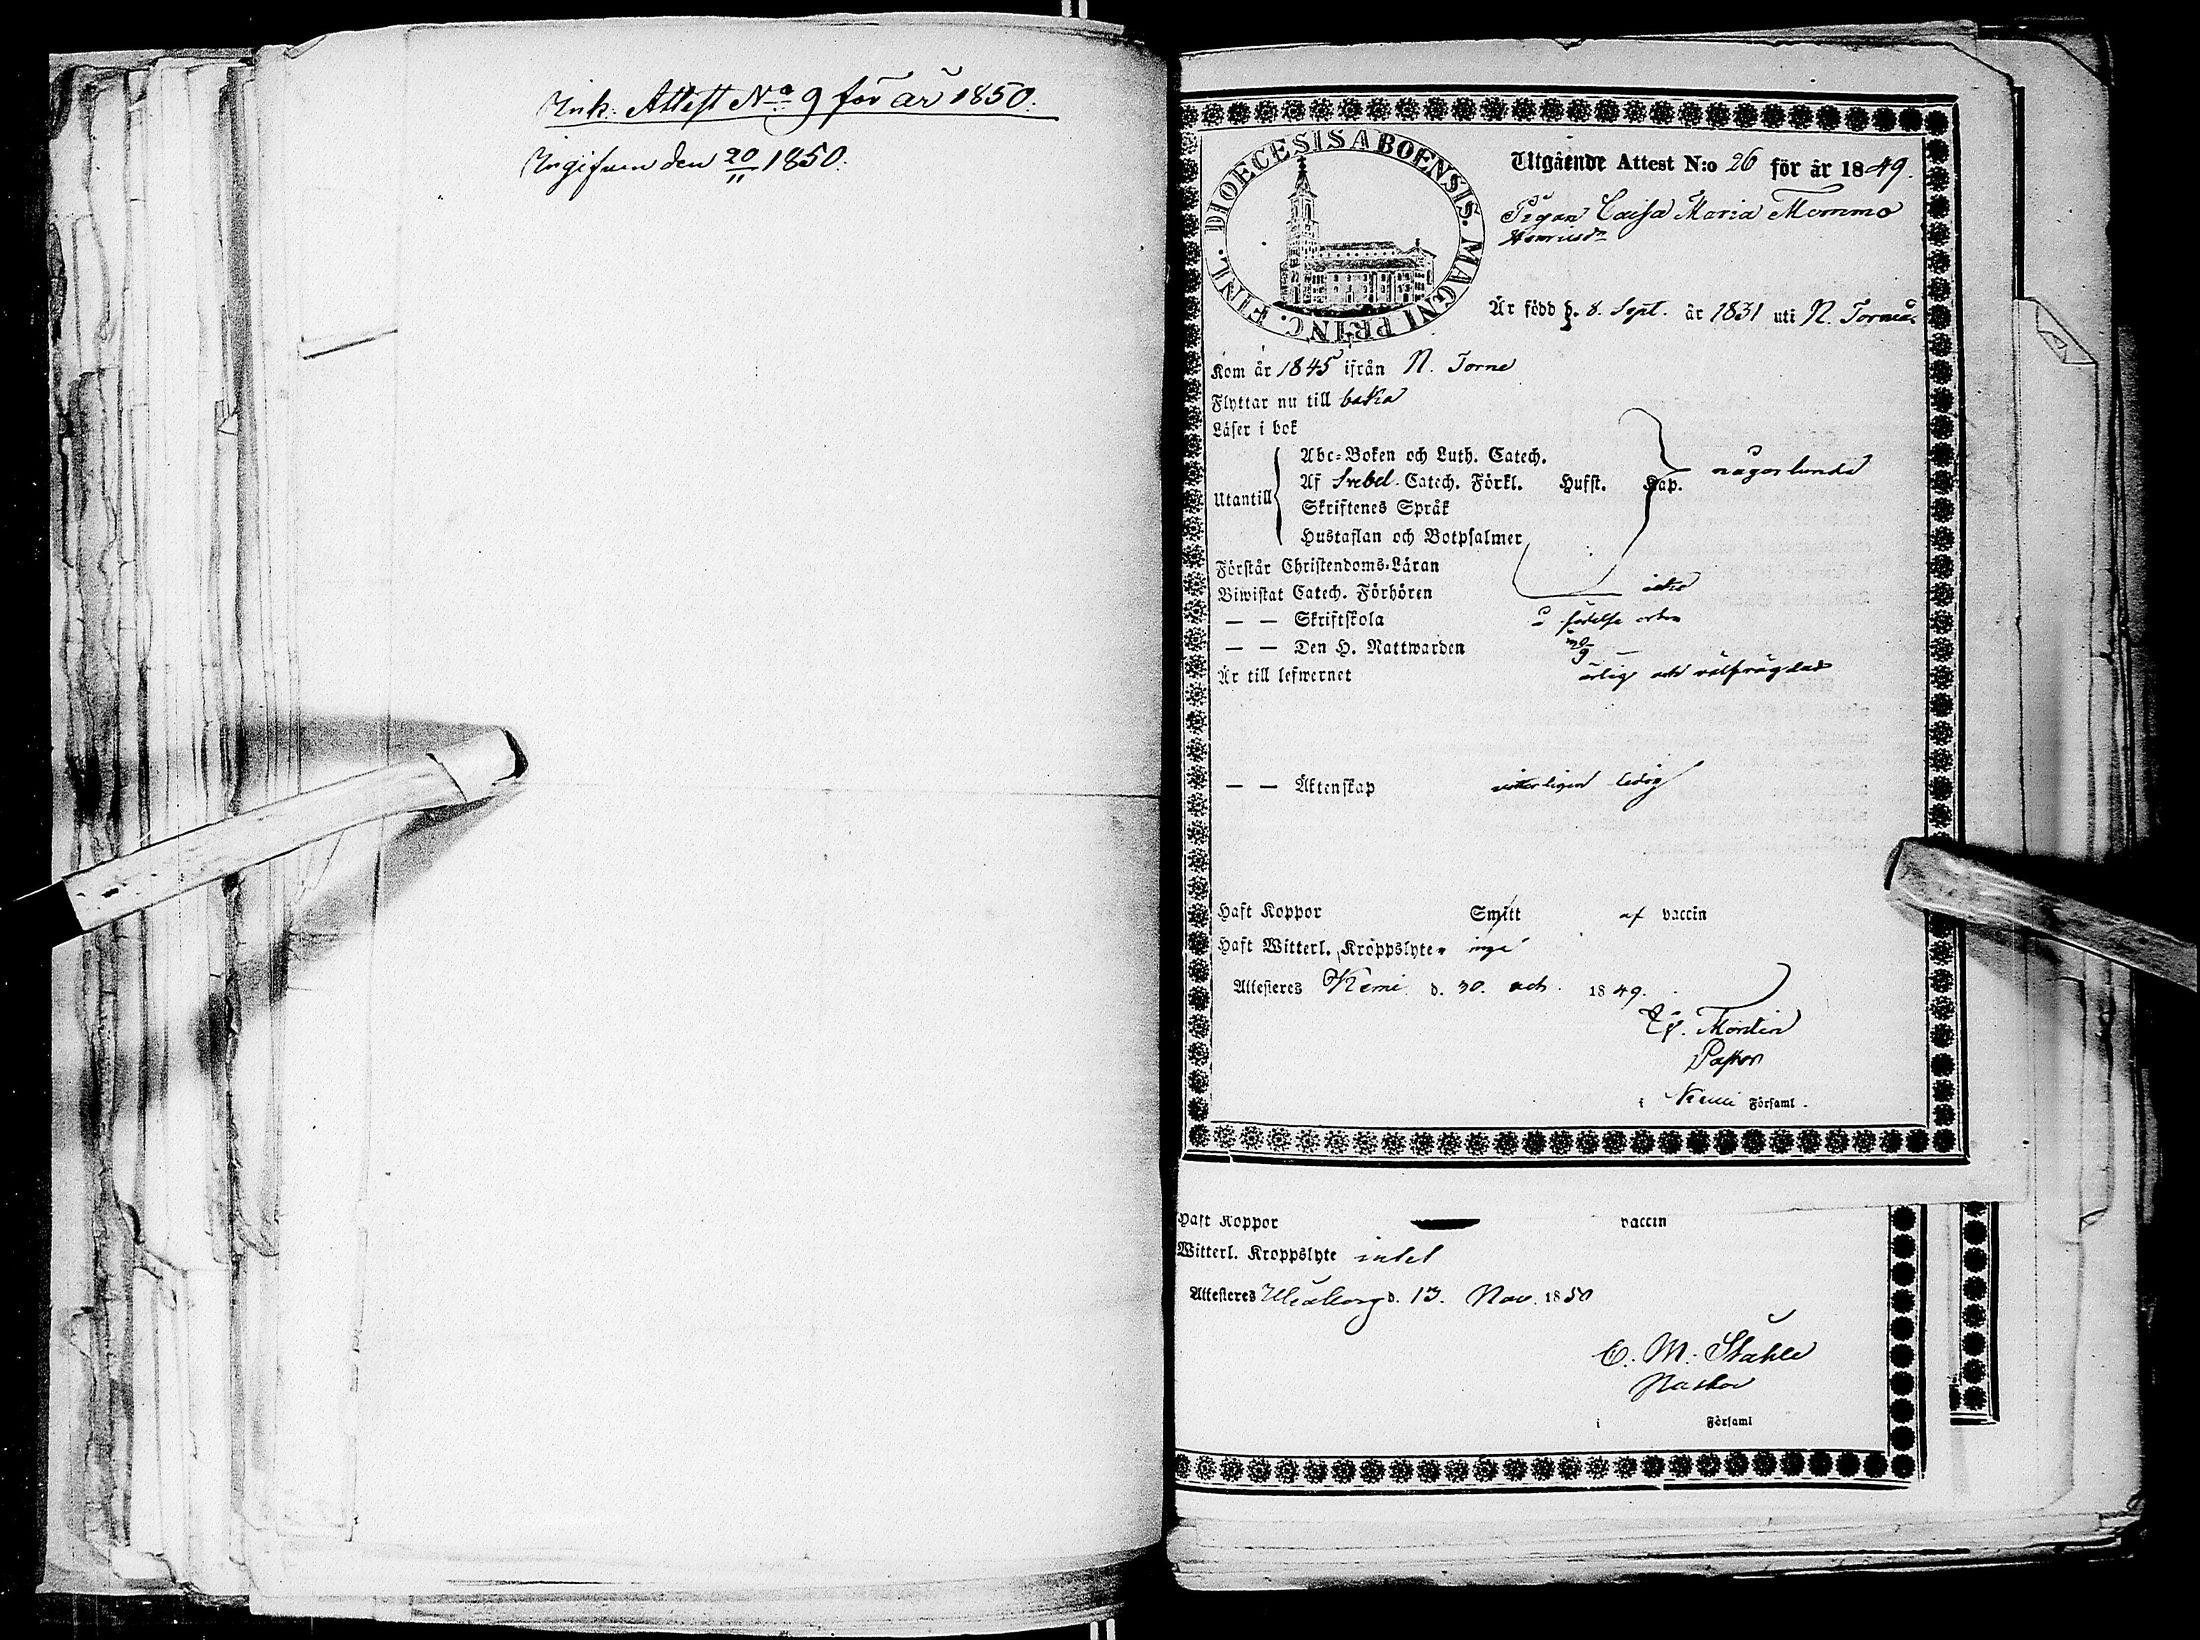 Ink. Attest No 9 för år 1850.
Ingifven den 20/11 1850.
DIOECESIS ABOENSIS. MAGNI PRINC. FINL.
Utgående Attest N:o 26 för år 1849.
Pigan Caisa Maria Mommo
Henricsdr
Är född d. 8. Sept. år 1831 uti N. Torneå
Kom år 1845 ifrån N. Torne
Flyttar nu till baka
Läser i bok
Utantill
Abc-Boken och Luth. Catech.
Af Svebel. Catech. Förkl. Hufst. Kap. någorlunda
Skriftenes Språk
Hustaflan och Botpsalmer
Förstår Christendoms-Läran
Biwistat Catech. Förhören icke
— — Skriftskola i födelse orten
— — Den H. Nattwarden
Är till lefwernet ärlig och välfrägdad
— — Äktenskap witterligen ledig
Haft Koppor Smitt af vaccin
Haft Witterl. Kroppslyte inga
Attesteres Kemi d. 30. och 1849.
Pastor
i Kemi Församl.
Haft Koppor vaccin
Witterl. Kroppslyte intet
Attesteres Uleåborg d. 13. Nov. 1850
C. M. Ståhle
Pastor
i Församl